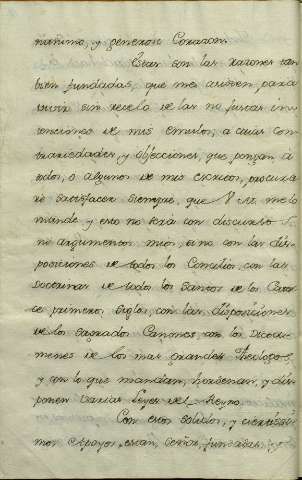 nanimo, y generoso Corazon.
Estas son las razones tam
bien fundadas, que me asisten, para
vivir sin recelo de las no justas in
tenciones de mis emulos, a cuias con
trariedades, y objecciones, que pongan à
todos, o algunos de mis escritos, procura
rè satisfacer siempre, que V. me lo
mande y esto no serà con discursos, ò
no argumentos mios, si no con las dis
posiciones de todos los Concilios, con las
Doctrinas de todos los Santos de los Cator
ce primeros siglos, con las disposiciones
de los Sagrados Canones, con los Dictà
menes de los mas grandes Theologos
y con lo que mandan, hordenan, y dis
ponen varias leyes del Reyno.
Con estos solidos, y ciertissi
mos Apoyos, estan, Señor, fundadas